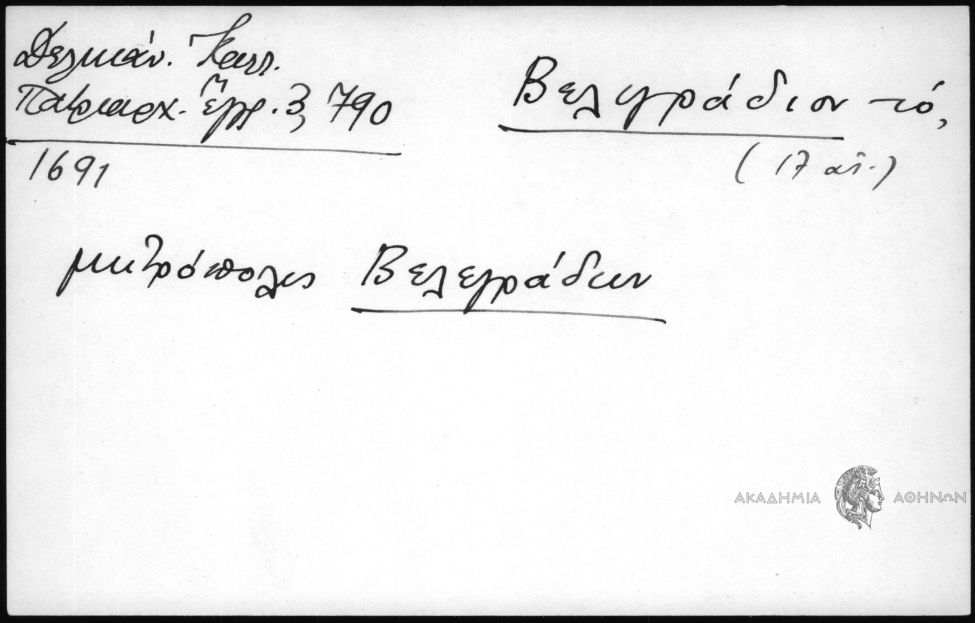 Δελικάν. Κατλ.
Πατριαρχ. ἔγγρ. 3, 790
1691
Βελεγράδιον τό,
(17 αἰ.)
μητρόπολις Βελεγράδων
ΑΚΑΔΗΜΙΑ ΑΘΗΝΩΝ